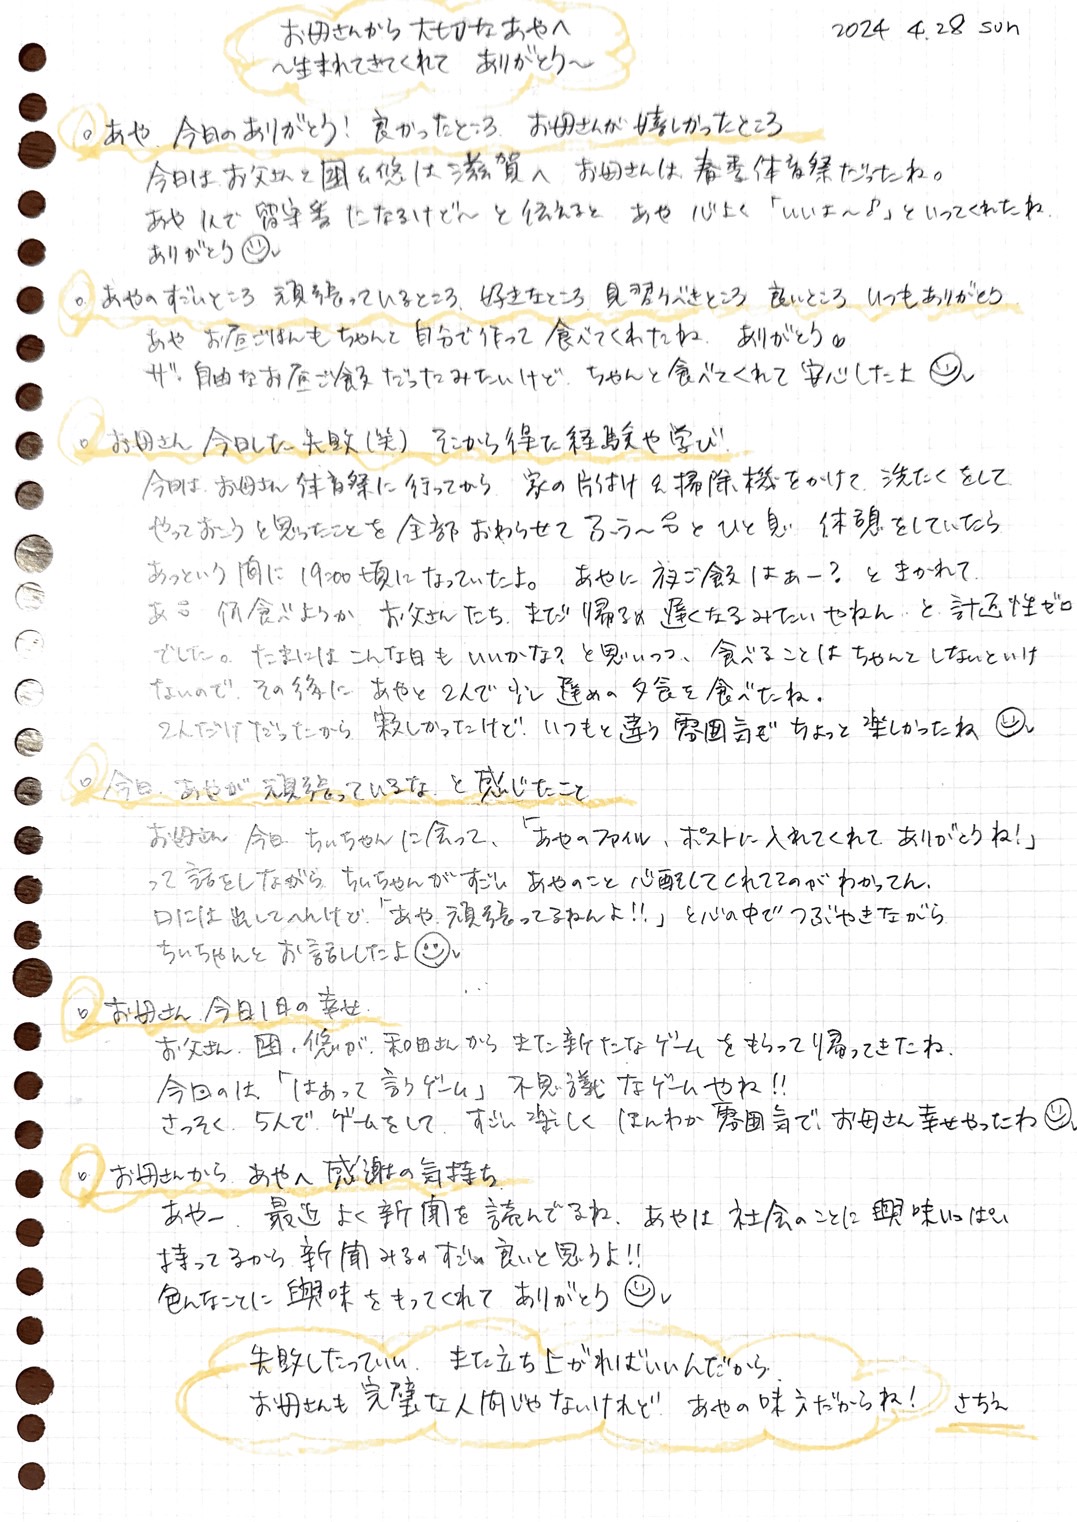 お母さんから 大切な あやへ
2024 4.28 sun
〜生まれてきてくれて ありがとう〜
○ あや 今日のありがとう! 良かったところ お母さんが嬉しかったところ
今日は お父さんと 囲&悠は 滋賀へ お母さんは 春季体育祭だったね。
あや 1人で 留守番 になるけど〜 と 伝えると あや 心よく「いいよ〜♪」といってくれたね
ありがとう☺
○ あやのすごいところ 頑張っているところ、好きなところ 見習うべきところ 良いところ いつもありがとう
あや お昼ごはんも ちゃんと 自分で作って 食べてくれたね ありがとう。
ザ・自由なお昼ご飯 だったみたいけど、ちゃんと食べてくれて 安心したよ ☺
○ お母さん 今日した 失敗(笑) そこから得た 経験や学び
今日は お母さん 体育祭に 行ってから 家の片付け & 掃除機をかけて 洗たくをして
やっておこうと思ったことを 全部 おわらせて ふぅ〜 と ひと息 休憩をしていたら
あっという間に 19:00頃に なっていたよ。 あやに 夜ご飯はぁー? と きかれて
あ 何食べようか お父さんたち、まだ 帰るの 遅くなるみたいやねん と 計画性ゼロ
でした。 たまには こんな日も いいかな? と思いつつ、 食べることは ちゃんと しないといけ
ないので、その後に あやと 2人で 少し 遅めの 夕食を 食べたね。
2人だけだったから 寂しかったけど いつもと違う 雰囲気で ちょっと 楽しかったね ☺
○ 今日 あやが 頑張っているな と 感じたこと
お母さん 今日 ちぃちゃんに会って、「あやのファイル、ポストに入れてくれて ありがとうね!」
って 話をしながら ちぃちゃんがすごい あやのこと 心配してくれてるのが わかってん。
口には出してへんけど、「あや 頑張ってるねんよ!!」と心の中で つぶやきながら
ちぃちゃんと お話ししたよ☺
○ お母さん 今日1日の 幸せ
お父さん、囲、悠が、和田さんから また新たなゲームをもらって帰ってきたね、
今日のは、「はあって言うゲーム」 不思議なゲームやね!!
さっそく 5人で ゲームをして すごい 楽しく ほんわか 雰囲気で、お母さん幸せやったわ☺
○ お母さんから あやへ 感謝の気持ち
あやー、 最近 よく 新聞を 読んでるね、 あやは 社会のことに 興味いっぱい
持ってるから 新聞みるの すごい 良いと思うよ!!
色んなことに 興味をもってくれて ありがとう ☺
失敗したっていい、また立ち上がればいいんだから
お母さんも 完璧な人間じゃないけれど あやの味方だからね! さちえ